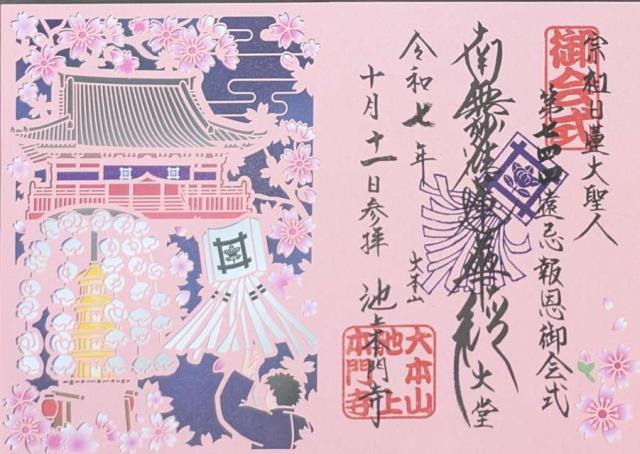 御会式
宗祖日蓮大聖人
第七四四遠忌報恩御会式
南無妙法蓮華経
大堂
令和七年
十月十一日参拝
大本山
池上本門寺
大本山
池上
本門寺